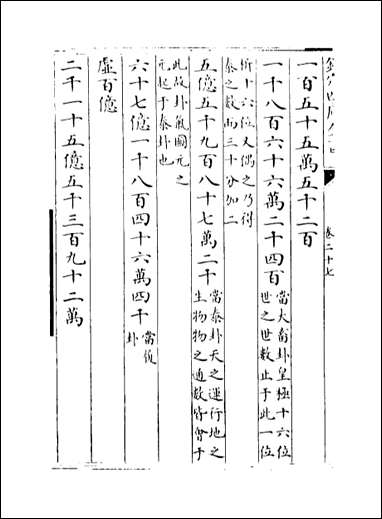 卷二十七
一百五十五萬五千二百
一千八百六十六萬二千四百當大畜卦皇極十六位
世之世數止于此一位
衍十六位又偶之乃得
泰之數而三十分加二
五億五千九百八十七萬二千當泰卦天之運行地之
生物物之通數皆會于
此故卦氣圖元之
元起于泰卦也
六十七億一千八百四十六萬四千當履
卦
虛百億
二千一十五億五千三百九十二萬